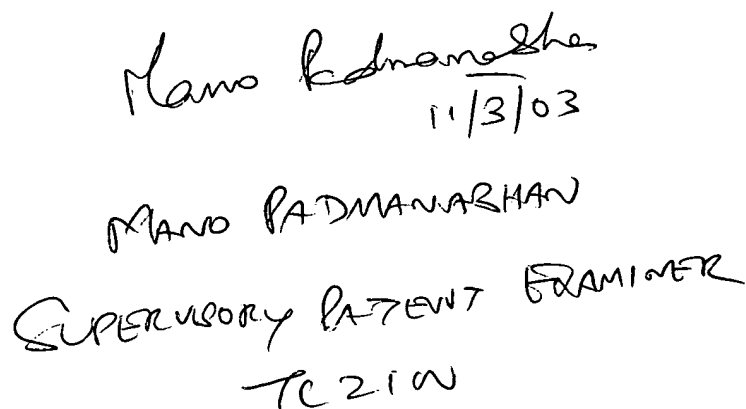 Mano Padmanabhan
11/3/03
MANO PADMANABHAN
SUPERVISORY PATENT EXAMINER
TC 2100